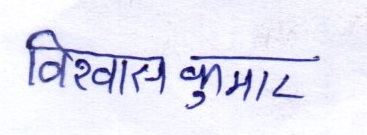 विश्वास कुमार